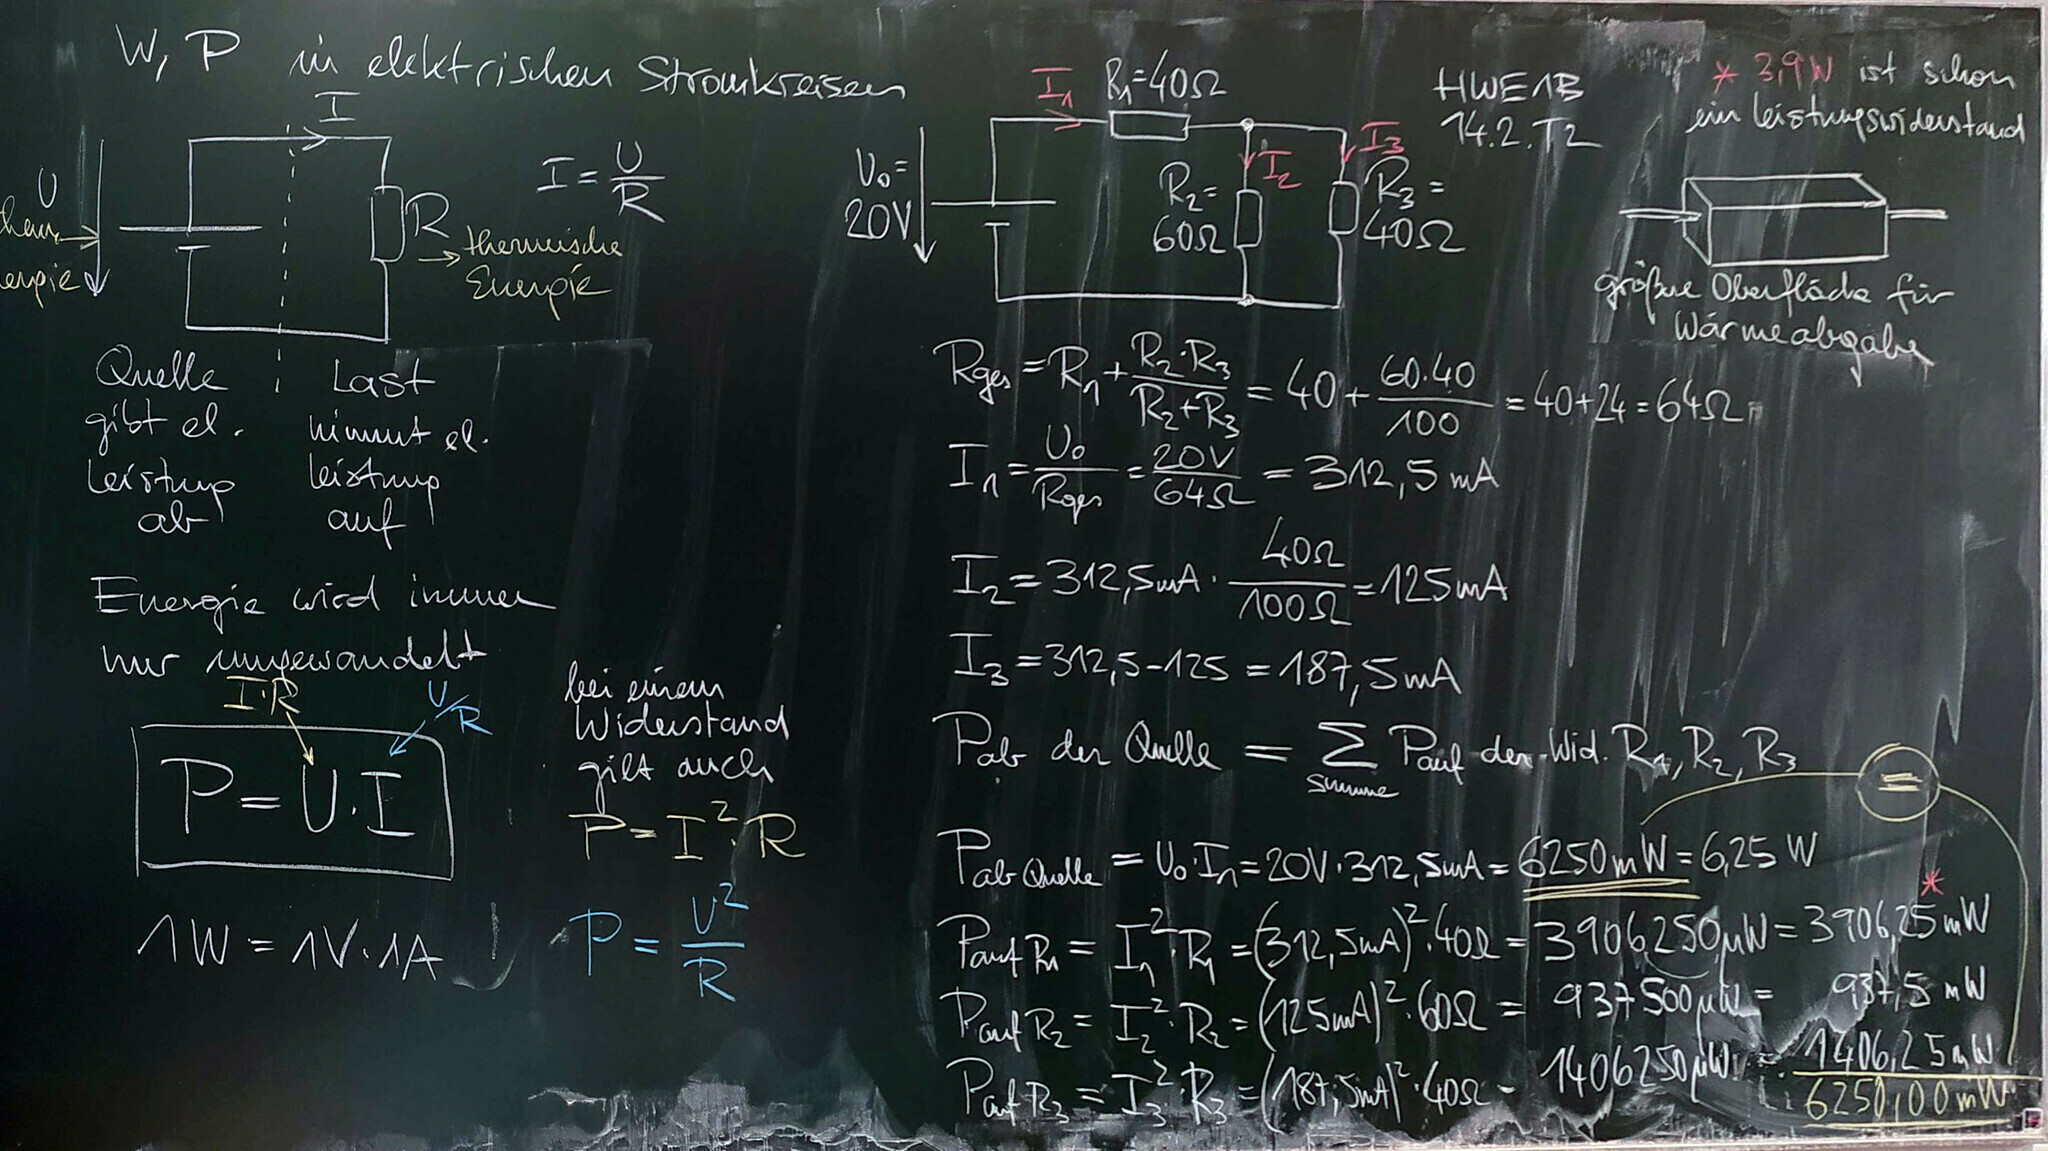 W, P in elektrischen Stromkreisen
I
U
R
I = U/R
→ thermische
Energie
Quelle
gibt el.
Leistung
ab
Last
nimmt el.
Leistung
auf
Energie wird immer
nur umgewandelt
I·R
U/R
P = U·I
1W = 1V·1A
bei einem
Widerstand
gilt auch
P = I²·R
P = U²/R
I₁
R₁=40Ω
U₀=
20V
I₂
R₂=
60Ω
I₃
R₃=
40Ω
HWE1B
14.2.T2
* 3,9W ist schon
ein Leistungswiderstand
größere Oberfläche für
Wärmeabgabe
Rges = R₁ + R₂·R₃/R₂+R₃ = 40 + 60·40/100 = 40+24 = 64Ω
I₁ = U₀/Rges = 20V/64Ω = 312,5 mA
I₂ = 312,5mA · 40Ω/100Ω = 125mA
I₃ = 312,5-125 = 187,5mA
Pab der Quelle = Σ Pauf der Wid. R₁, R₂, R₃
Summe
=
Pab Quelle = U₀·I₁ = 20V·312,5mA = 6250mW = 6,25 W
*
Pauf R₁ = I₁²·R₁ = (312,5mA)²·40Ω = 3906250µW = 3906,25mW
Pauf R₂ = I₂²·R₂ = (125mA)²·60Ω = 937500µW = 937,5 mW
Pauf R₃ = I₃²·R₃ = (187,5mA)²·40Ω = 1406250µW = 1406,25mW
6250,00mW